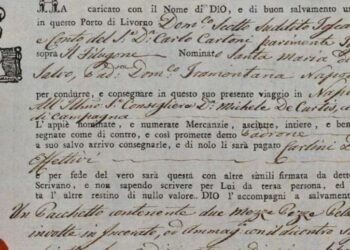 HA caricato con il Nome di DIO, e di buon salvamento un
in questo Porto di Livorno Dom.co Scotto Suddito
Conto del S.r D. Carlo Cartoni parimente
sopra il Nominat Santa Maria di
Salvo, Padron Dom.co Tramontana
per condurre, e consegnare in questo suo presente viaggio in Napoli
All Illmo Sig. Consigliere D. Michele De Curtis
di Campagna
L'appiè nominate, e numerate Mercanzie, asciutte, intiere, e ben
segnate come di contro, e così promette detto Padrone
a suo salvo arrivo consegnarle, e di nolo li sarà pagato Carlini
Effettivi
per fede del vero sarà questa con altre simili firmata da detto
Scrivano, e non sapendo scrivere per Lui da terza persona, ed
ta l' altre restino di nullo valore. DIO l'accompagni a salvamento
Un Pacchetto contenente due Mezze Pezze
involte in Incerato, ed Ammag. con il dicontro